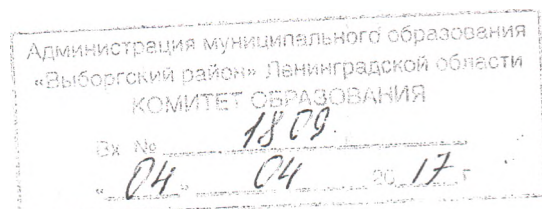 Администрация муниципального образования
«Выборгский район» Ленинградской области
КОМИТЕТ ОБРАЗОВАНИЯ
Вх. № 1809.
"04" 04 2017 г